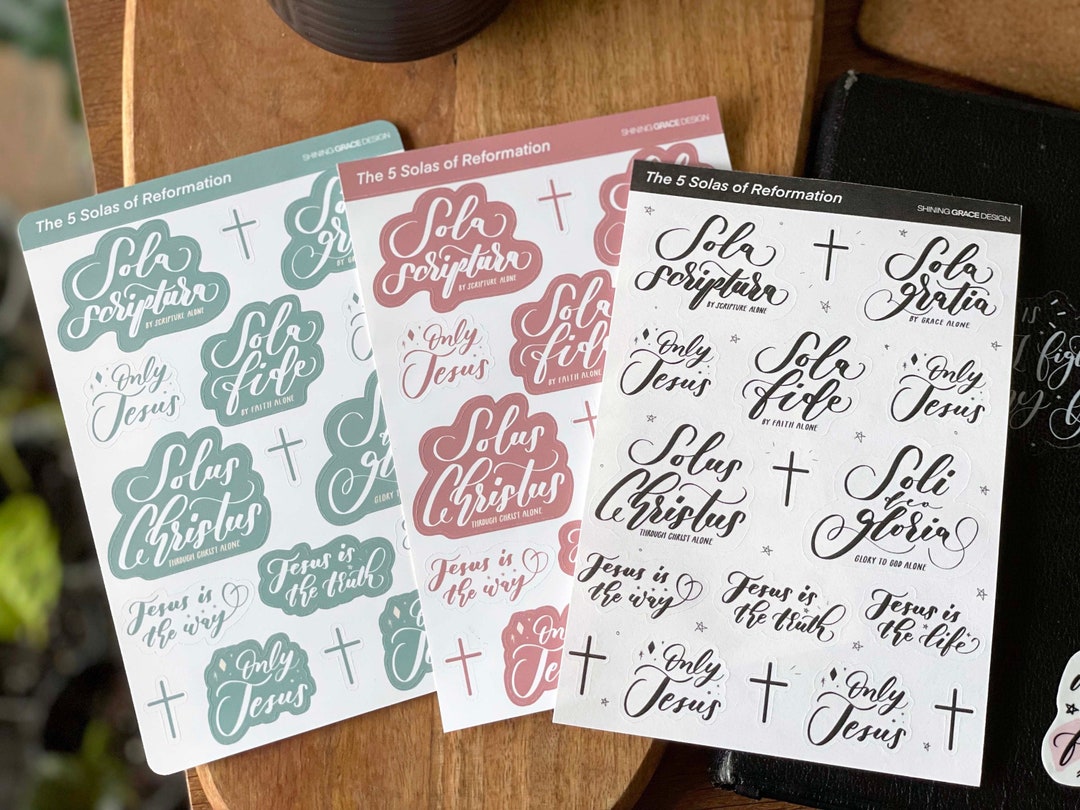 The 5 Solas of Reformation
SHINING GRACE DESIGN
Sola
scriptura
BY SCRIPTURE ALONE
Sola
Only
Jesus
Sola
fide
BY FAITH ALONE
Solus
Christus
THROUGH CHRIST ALONE
GLORY TO GOD
Jesus is
the way
Jesus is
the truth
Only
Jesus
The 5 Solas of Reformation
SHINING GRACE DESIGN
Sola
scriptura
BY SCRIPTURE ALONE
Only
Jesus
Sola
fide
BY FAITH ALONE
Solus
Christus
THROUGH CHRIST ALONE
Jesus is
the way
The 5 Solas of Reformation
SHINING GRACE DESIGN
Sola
scriptura
BY SCRIPTURE ALONE
Sola
gratia
BY GRACE ALONE
Only
Jesus
Sola
fide
BY FAITH ALONE
Only
Jesus
Solus
Christus
THROUGH CHRIST ALONE
Soli
teo
gloria
GLORY TO GOD ALONE
Jesus is
the way
Jesus is
the truth
Jesus is
the life
Only
Jesus
Only
Jesus